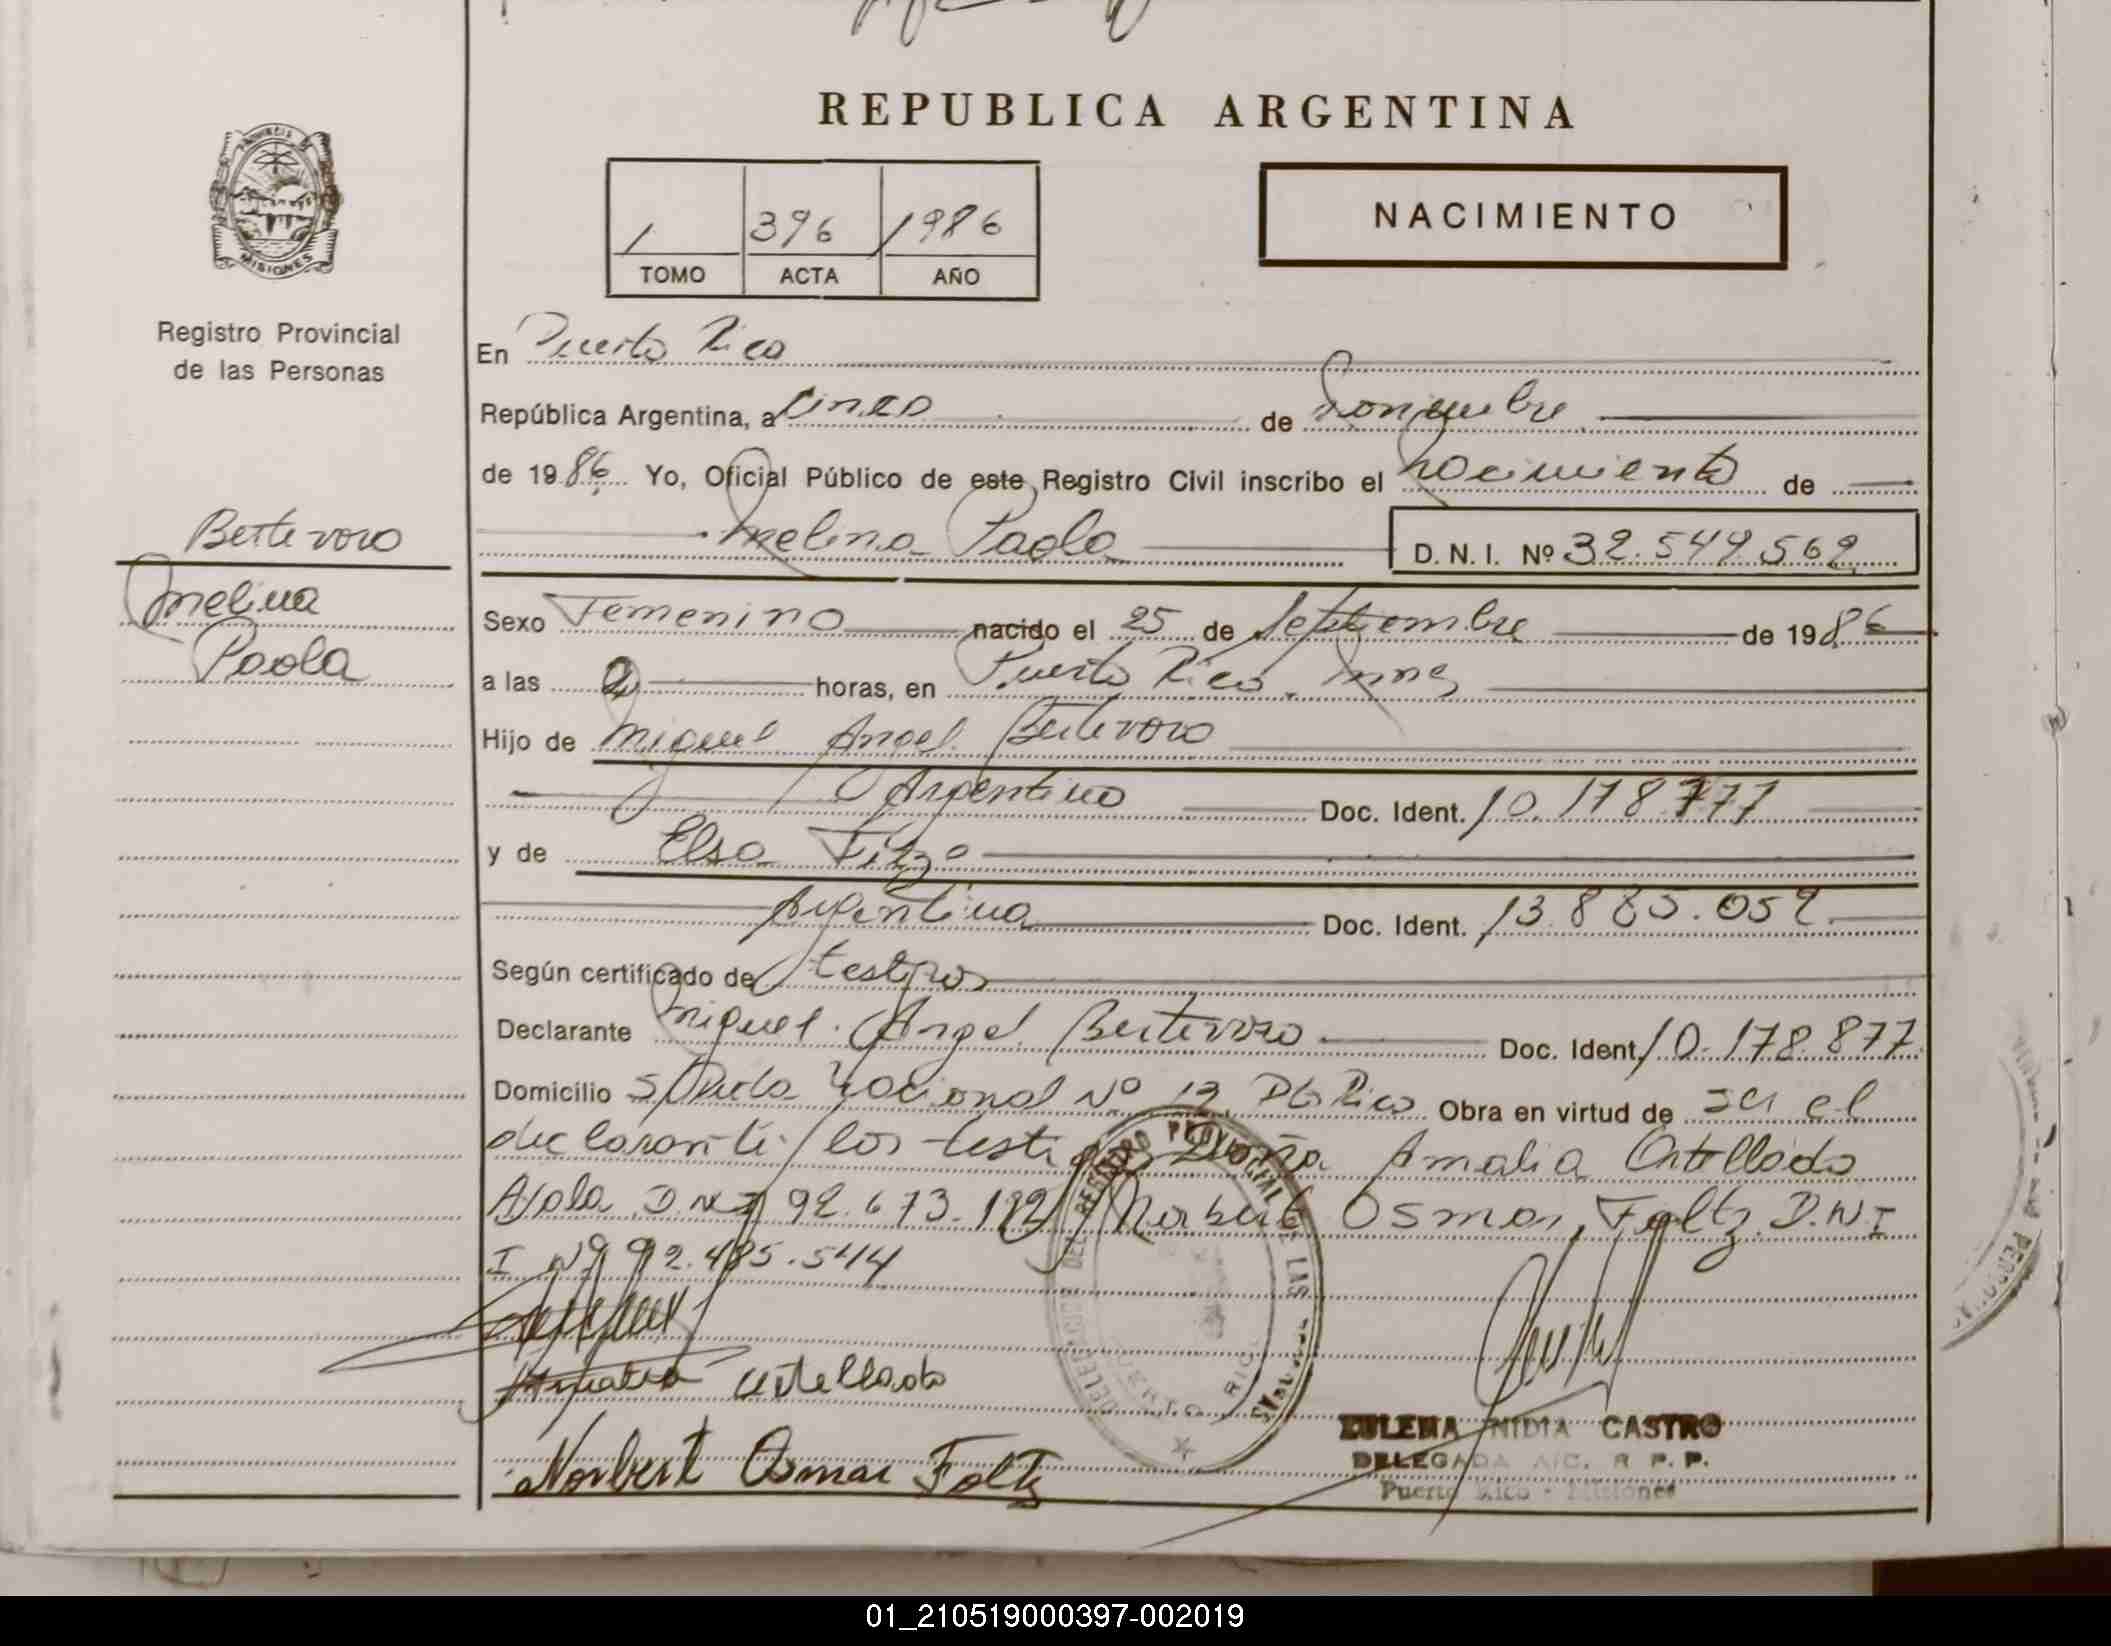 REPUBLICA ARGENTINA
PROVINCIA DE
MISIONES
1 396 1986
TOMO ACTA AÑO
NACIMIENTO
Registro Provincial
de las Personas
En Puerto Rico
República Argentina, a cinco de noviembre
de 1986 Yo, Oficial Público de este Registro Civil inscribo el nacimiento de
Melina Paola D. N. I. Nº 32.549.562
Bertevoro
Melina
Paola
Sexo Femenino nacido el 25 de Septiembre de 1986
a las 2 horas, en Puerto Rico. Mnes
Hijo de Miguel Angel Bertevoro
Argentino Doc. Ident. 10.178.777
y de Elsa
Argentina Doc. Ident. 13.885.052
Según certificado de testigos
Declarante Miguel Angel Bertevoro Doc. Ident. 10.178.877
Domicilio S/Ruta Nacional Nº 12 Pto Rico Obra en virtud de ser el
declarante/los testigos Doña Amalia
Ayala D.N.I 92.673.122 y Norberto Osmar Foltz D.N.I
I Nº 92.485.544
DELEGACION DEL REGISTRO PROVINCIAL DE LAS PERSONAS
PUERTO RICO
Norbert Osmar Foltz
ZULEMA NIDIA CASTRO
DELEGADA A/C. R P. P.
Puerto Rico - Misiones
01_210519000397-002019